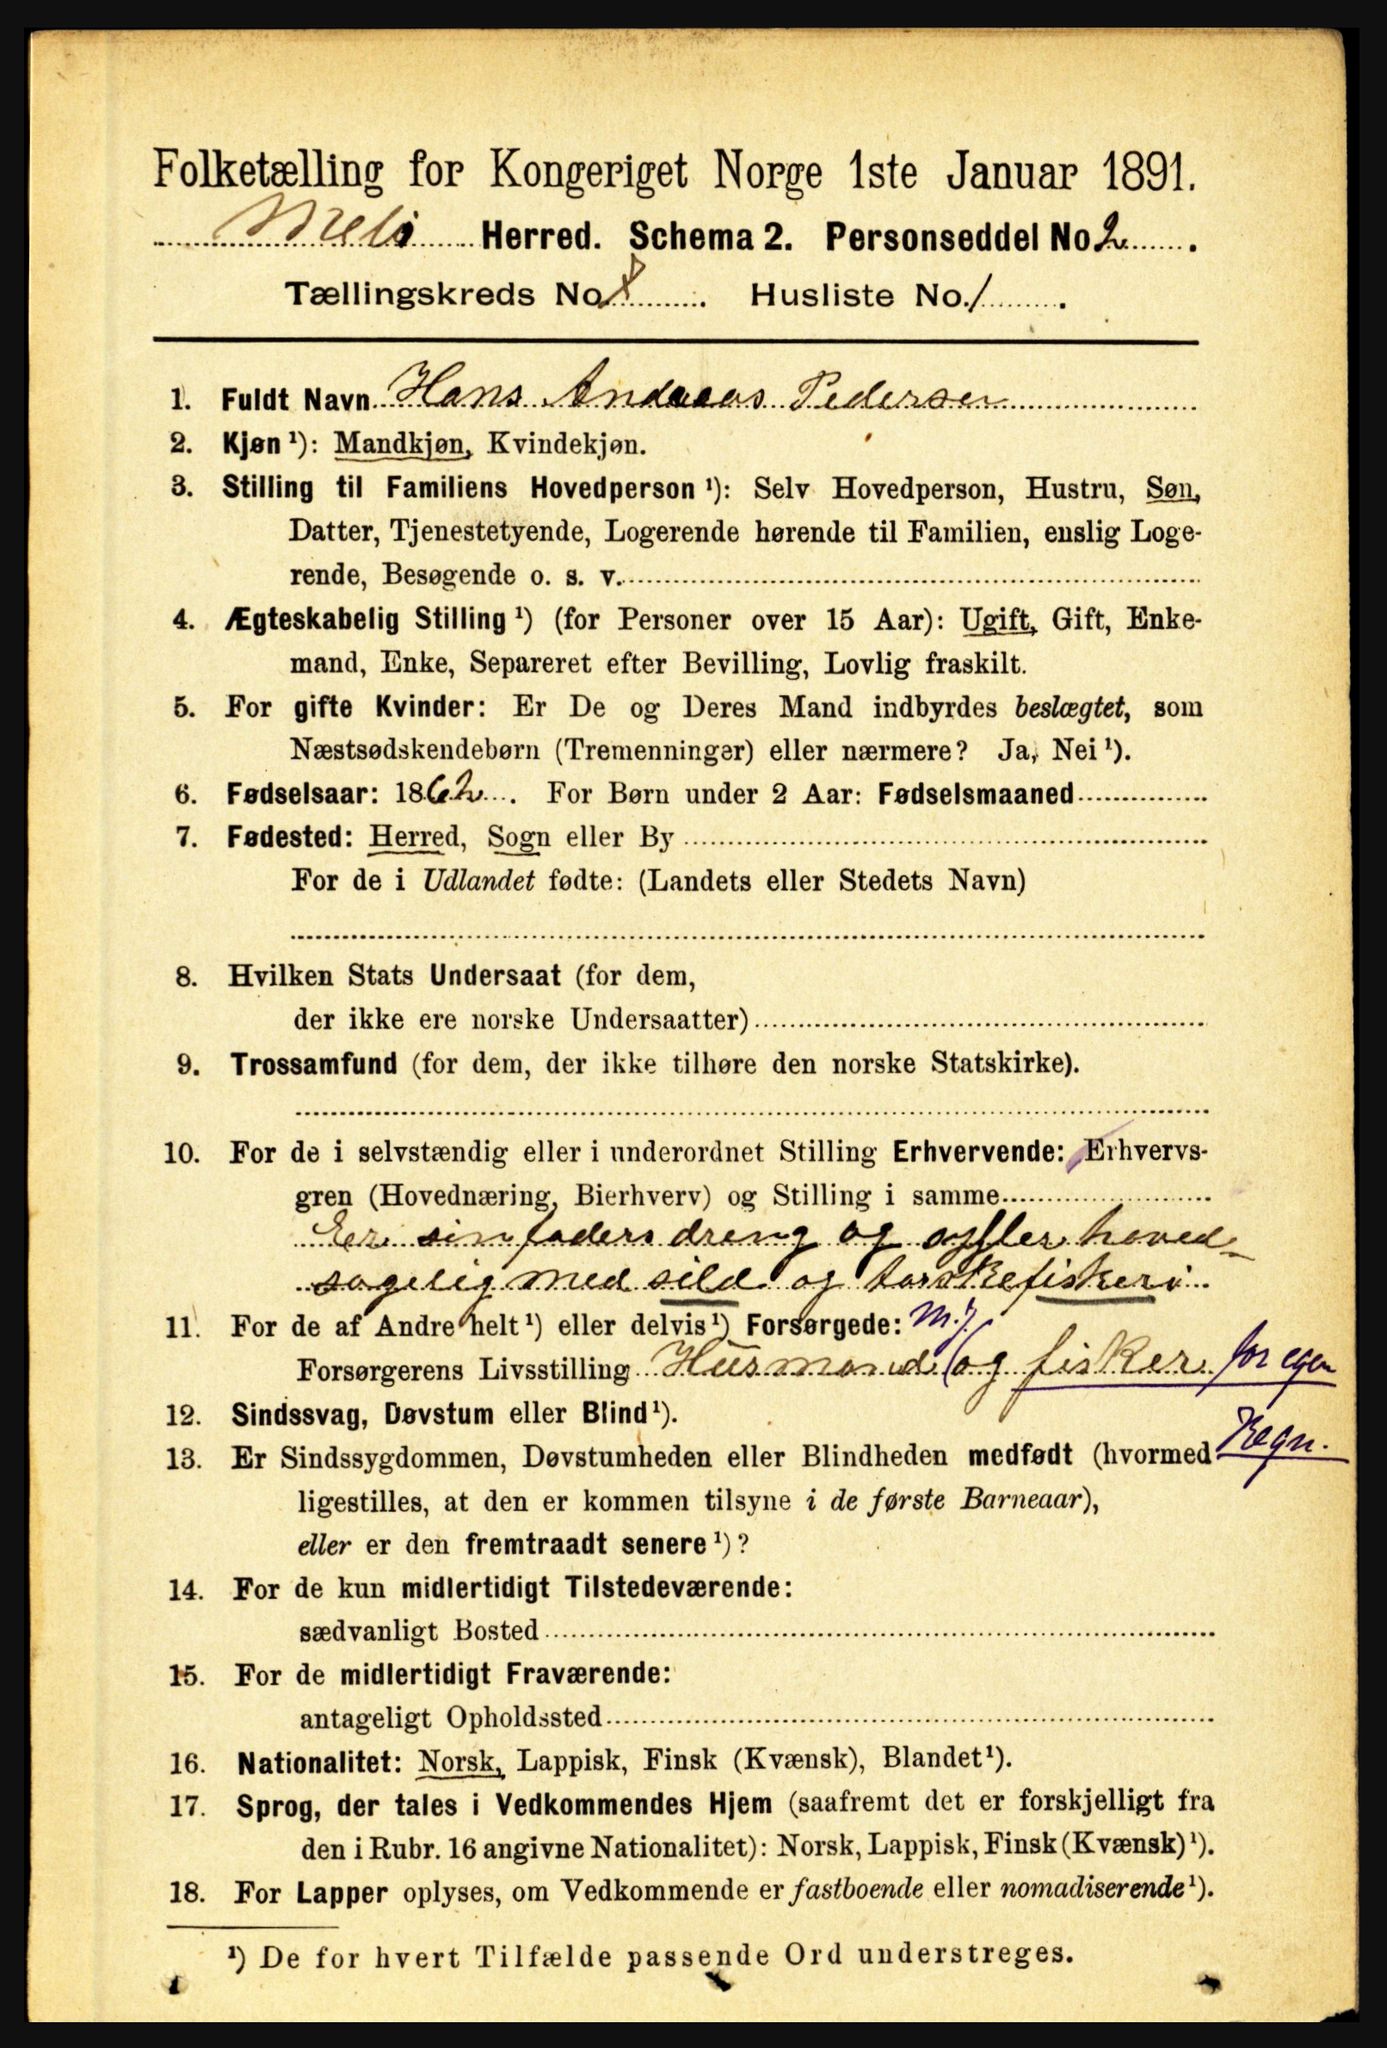 Folketælling for Kongeriget Norge 1ste Januar 1891.
Melø Herred. Schema 2. Personseddel No 2.
Tællingskreds No. 8. Husliste No. 1.
1. Fuldt Navn Hans Andreas Pedersen
2. Kjøn ¹): Mandkjøn, Kvindekjøn.
3. Stilling til Familiens Hovedperson ¹): Selv Hovedperson, Hustru, Søn,
Datter, Tjenestetyende, Logerende hørende til Familien, enslig Loge-
rende, Besøgende o. s. v.
4. Ægteskabelig Stilling ¹) (for Personer over 15 Aar): Ugift, Gift, Enke-
mand, Enke, Separeret efter Bevilling, Lovlig fraskilt.
5. For gifte Kvinder: Er De og Deres Mand indbyrdes beslægtet, som
Næstsødskendebørn (Tremenninger) eller nærmere? Ja, Nei ¹).
6. Fødselsaar: 1862. For Børn under 2 Aar: Fødselsmaaned
7. Fødested: Herred, Sogn eller By
For de i Udlandet fødte: (Landets eller Stedets Navn)
8. Hvilken Stats Undersaat (for dem,
der ikke ere norske Undersaatter)
9. Trossamfund (for dem, der ikke tilhøre den norske Statskirke).
10. For de i selvstændig eller i underordnet Stilling Erhvervende: Erhvervs-
gren (Hovednæring, Bierhverv) og Stilling i samme
Er sin faders dreng og sysler hoved-
sagelig med sild og torskefiskeri
11. For de af Andre helt ¹) eller delvis ¹) Forsørgede: M.
Forsørgerens Livsstilling Husmand (og fisker for egen
Regn.
12. Sindssvag, Døvstum eller Blind ¹).
13. Er Sindssygdommen, Døvstumheden eller Blindheden medfødt (hvormed
ligestilles, at den er kommen tilsyne i de første Barneaar),
eller er den fremtraadt senere ¹)?
14. For de kun midlertidigt Tilstedeværende:
sædvanligt Bosted
15. For de midlertidigt Fraværende:
antageligt Opholdssted
16. Nationalitet: Norsk, Lappisk, Finsk (Kvænsk), Blandet ¹).
17. Sprog, der tales i Vedkommendes Hjem (saafremt det er forskjelligt fra
den i Rubr. 16 angivne Nationalitet): Norsk, Lappisk, Finsk (Kvænsk) ¹).
18. For Lapper oplyses, om Vedkommende er fastboende eller nomadiserende ¹).
¹) De for hvert Tilfælde passende Ord understreges.